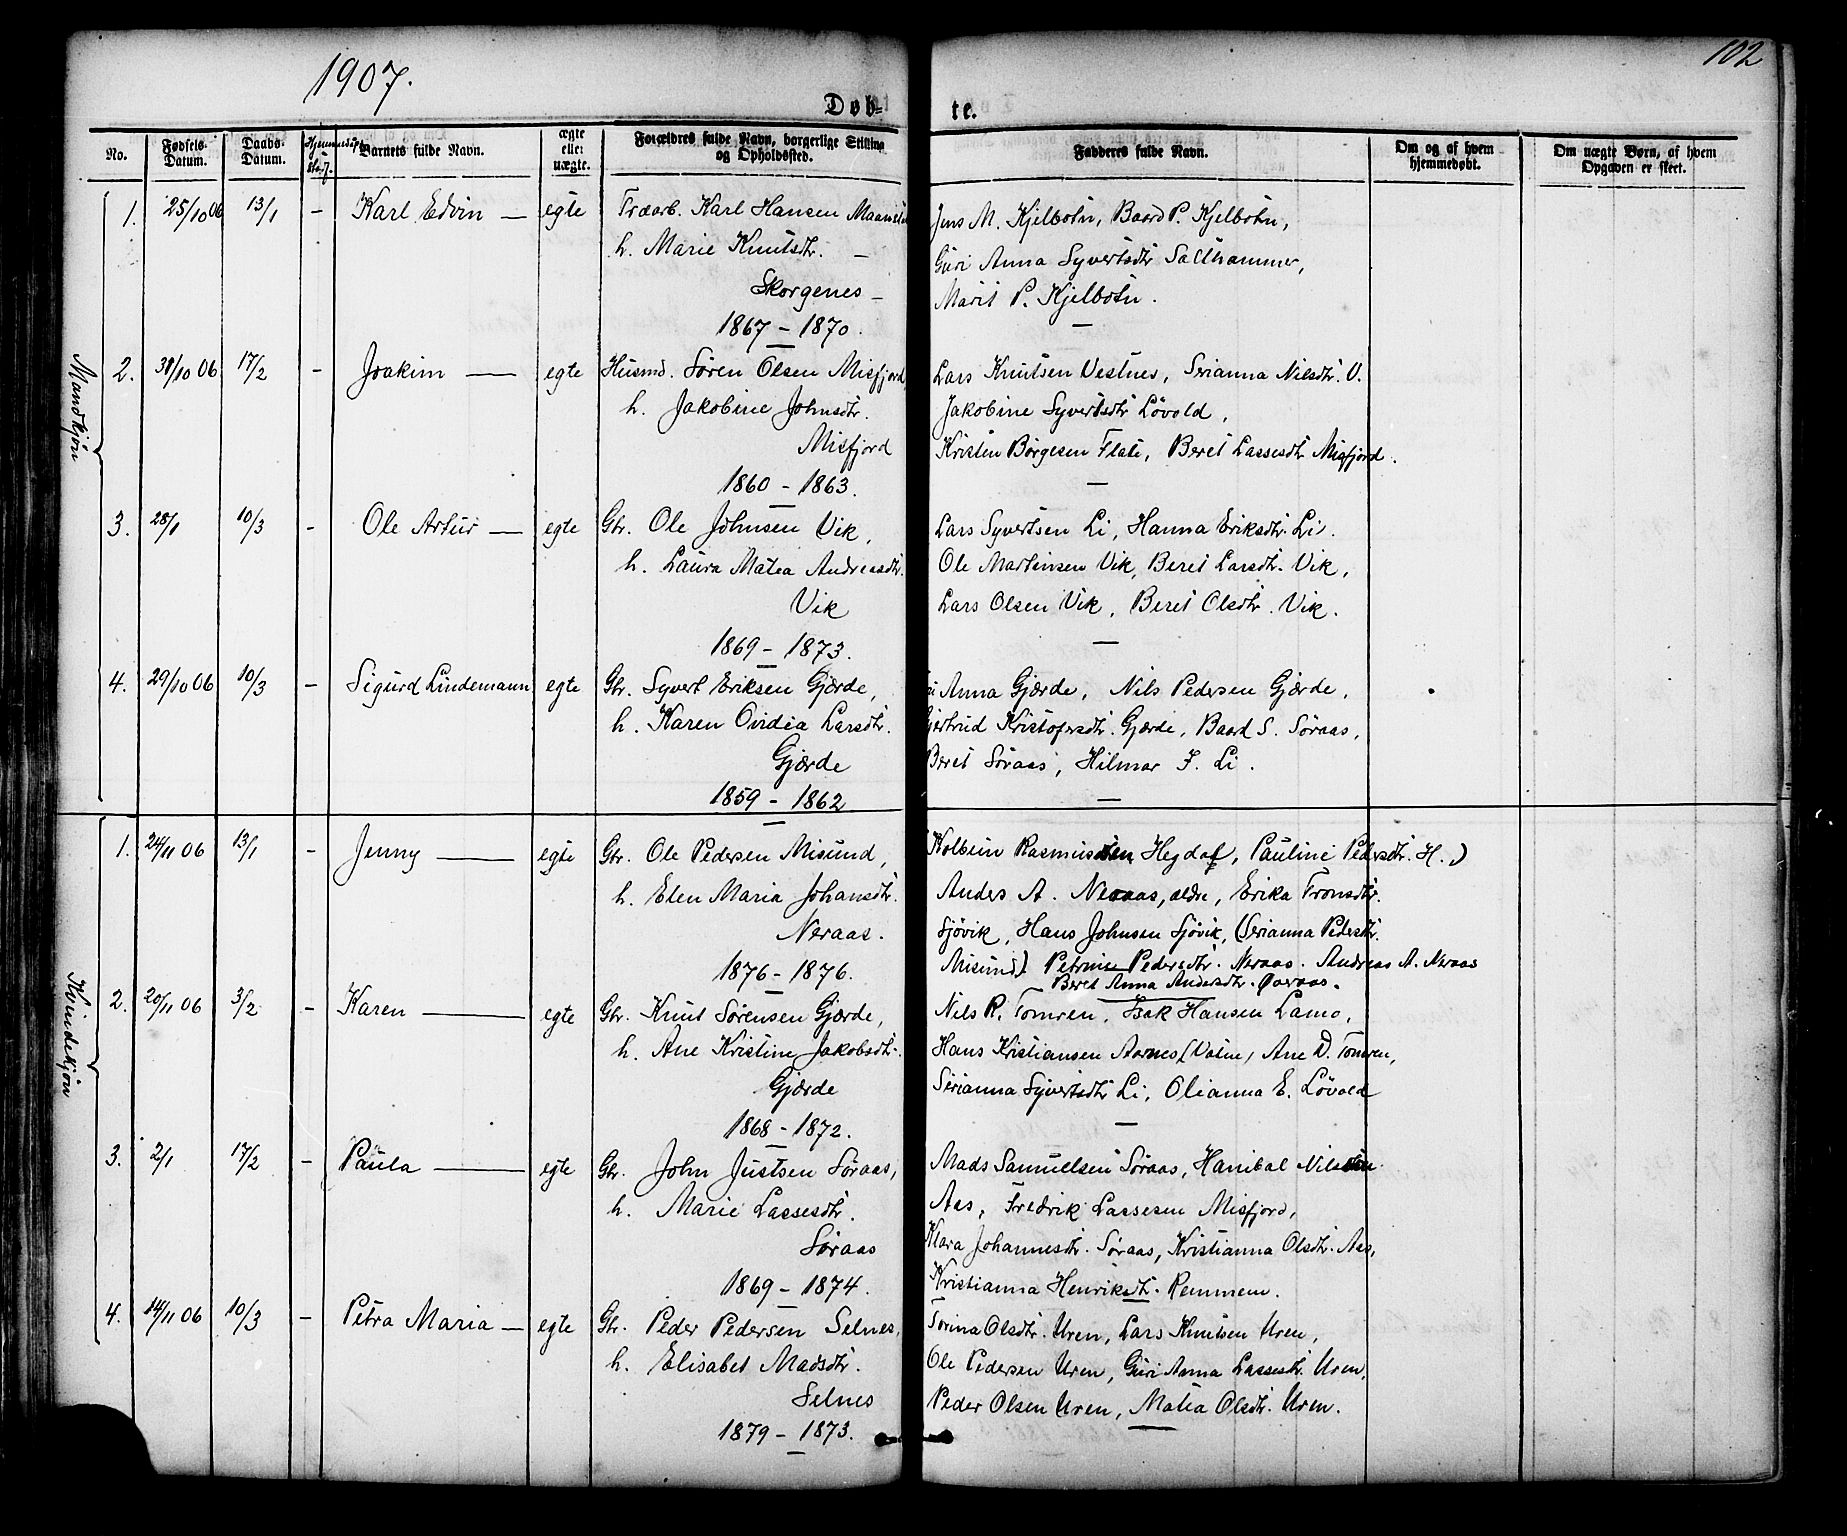 1907.
102
Døb-
te.
No.
Fødsels-
Datum.
Daabs-
Datum.
Barnets fulde Navn.
ægte
eller
uægte.
Forældres fulde Navn, borgerlige Stilling
og Opholdssted.
Fadderes fulde Navn.
Om og af hvem
hjemmedøbt.
Om uægte Børn, af hvem
Opgaven er skeet.
Mandkjön
1. 25/10 06 13/1 – Karl Edvin — egte Træarb. Karl Hansen
h. Marie Knutsdtr. –
Skorgenes –
1867 – 1870.
Jens M. Kjelbotn, Baard P. Kjelbotn,
Guri Anna Syvertsdtr Salthammer,
Marit P. Kjelbotn.
2. 31/10 06 17/2 – Joakim — egte Husmd. Sören Olsen Misfjord
h. Jakobine Johnsdtr.
Misfjord
1860 – 1863.
Lars Knutsen Vestnes, Serianna Nilsdtr. V.
Jakobine Syvertsdtr Lövold,
Kristen Börgesen Flate, Beret Lassesdtr Misfjord.
3. 28/1 10/3 – Ole Artur — egte Gbr. Ole Johnsen Vik,
h. Laura Matea Andreasdtr.
Vik
1869 – 1873.
Lars Syvertsen Li, Hanna Eriksdtr. Li.
Ole Martinsen Vik, Beret Larsdtr. Vik,
Lars Olsen Vik, Beret Olsdtr. Vik.
4. 29/10 06 10/3 – Sigurd Lindemann egte Gbr. Syvert Eriksen Gjærde,
h. Karen Ovidia Larsdtr.
Gjærde
1859 – 1862
Anna Gjærde, Nils Pedersen Gjærde,
Gjertrud Kristofersdtr. Gjærde, Baard S. Söraas,
Beret Söraas, Hilmar F. Li.
Kvindekjön
1. 24/11 06 13/1 – Jenny — egte Gbr. Ole Pedersen Misund,
h. Elen Maria Johansdtr.
Neraas.
1876 – 1876.
Kolbein Rasmussen Hegdal, Pauline Pedersdtr. H.,
Anders A. Neraas, ældre, Erika Tronsdtr.
Sjövik, Hans Johnsen Sjövik, (Serianna Pedersdtr.
Misund) Petrine Pedersdtr. Neraas. Andreas A. Neraas
Beret Anna Andersdtr. Øveraas.
2. 20/11 06 3/2 – Karen — egte Gbr. Knut Sörensen Gjærde,
h. Ane Kristine Jakobsdtr.
Gjærde
1868 – 1872.
Nils R. Tomren, Isak Hansen Lamo,
Hans Kristiansen Aarnes (Vatne) Ane D. Tomren,
Serianna Syvertsdtr Li, Olianna E. Lövold
3. 2/1 17/2 – Paula — egte Gbr. John Justsen Söraas,
h. Marie Lassesdtr.
Söraas
1869 – 1874.
Mads Samuelsen Söraas, Hanibal Nilssen
Aas, Fredrik Lassesen Misfjord,
Klara Johannesdtr. Söraas, Kristianna Olsdtr. Aas,
Kristianna Henriksdtr. Remmem.
4. 14/11 06 10/3 – Petra Maria — egte Gbr. Peder Pedersen Selnes,
h. Elisabet Madsdtr.
Selnes
1879 – 1873.
Torina Olsdtr. Uren, Lars Knutsen Uren,
Ole Pedersen Uren, Guri Anna Lassesdtr. Uren,
Peder Olsen Uren, Matea Olsdtr. Uren.